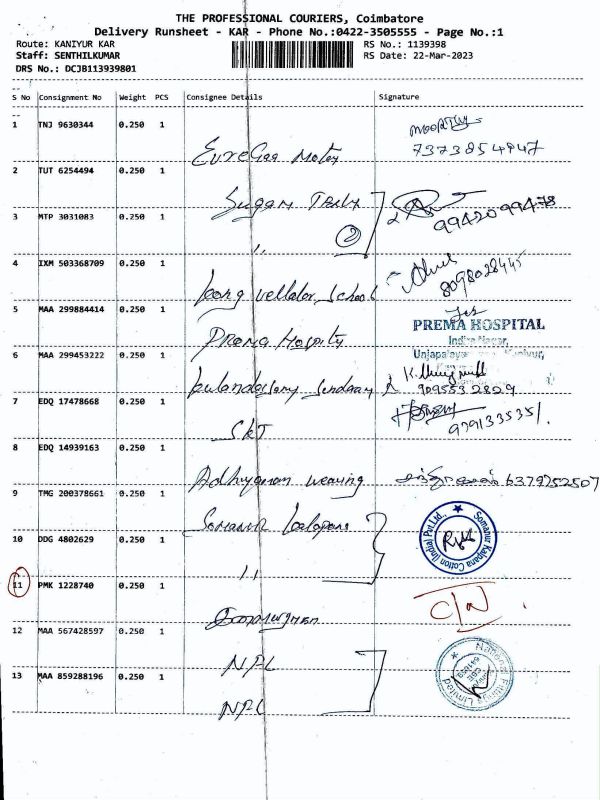 THE PROFESSIONAL COURIERS, Coimbatore
Delivery Runsheet - KAR - Phone No.:0422-3505555 - Page No.:1
Route: KANIYUR KAR RS No.: 1139398
Staff: SENTHILKUMAR RS Date: 22-Mar-2023
DRS No.: DCJB113939801
S No Consignment No Weight PCS Consignee Details Signature
1 TNJ 9630344 0.250 1
7373854947
Motor
2 TUT 6254494 0.250 1
Sugam
3 MTP 3031083 0.250 1 9942099478
,, 2
4 IXM 503368709 0.250 1 8098028445
vellalar School
5 MAA 299884414 0.250 1
Prema Hospity PREMA HOSPITAL
Indira Nagar,
6 MAA 299453222 0.250 1
9095532829
7 EDQ 17478668 0.250 1
SKT
8 EDQ 14939163 0.250 1
Adhiyaman weaving 6379252507
9 TMG 200378661 0.250 1
Somanur Kalpana
Somanur Kalpana Cotton (India) Pvt.Ltd.,
10 DDG 4802629 0.250 1
,,
11 PMK 1228740 0.250 1
C/N
12 MAA 567428597 0.250 1
NPL
13 MAA 859288196 0.250 1
NPL